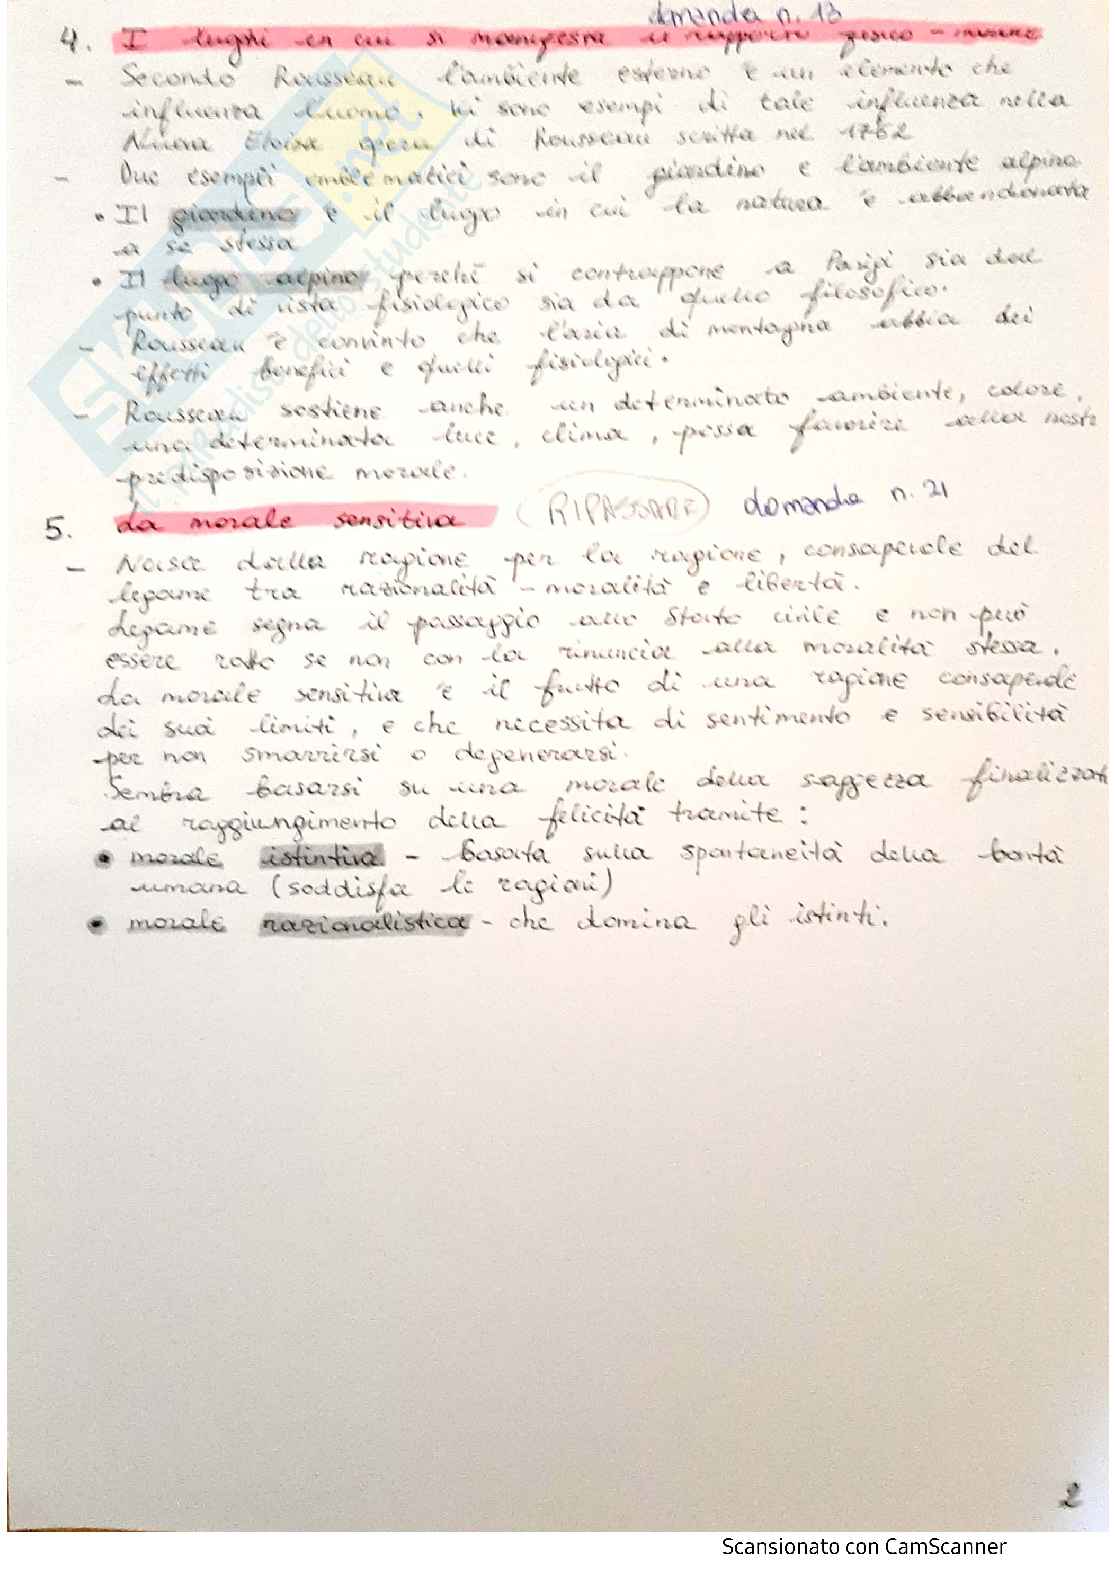 domanda n. 13
4. I luoghi in cui si manifesta il rapporto fisico - morale
- Secondo Rousseau l'ambiente esterno è un elemento che
influenza l'uomo. Vi sono esempi di tale influenza nella
Nuova Eloisa opera di Rousseau scritta nel 1762
- Due esempi emblematici sono il giardino e l'ambiente alpino
• Il giardino è il luogo in cui la natura è abbandonata
a se stessa
• Il luogo alpino perchè si contrappone a Parigi sia dal
punto di vista fisiologico sia da quello filosofico.
- Rousseau è convinto che l'aria di montagna abbia dei
effetti benefici e quelli fisiologici.
- Rousseau sostiene anche un determinato ambiente, colore,
una determinata luce, clima, possa favorire alla nostr
predisposizione morale.
5. La morale sensitiva (RIPASSARE) domanda n. 21
- Nasce dalla ragione per la ragione, consapevole del
legame tra razionalità - moralità e libertà.
Legame segna il passaggio allo Stato civile e non può
essere rotto se non con la rinuncia alla moralità stessa.
La morale sensitiva è il frutto di una ragione consapevole
dei suoi limiti, e che necessita di sentimento e sensibilità
per non smarrirsi o degenerarsi.
Sembra basarsi su una morale della saggezza finalizzat
al raggiungimento della felicità tramite:
• morale istintiva - basata sulla spontaneità della bontà
umana (soddisfa le ragioni)
• morale razionalistica - che domina gli istinti.
2
Scansionato con CamScanner